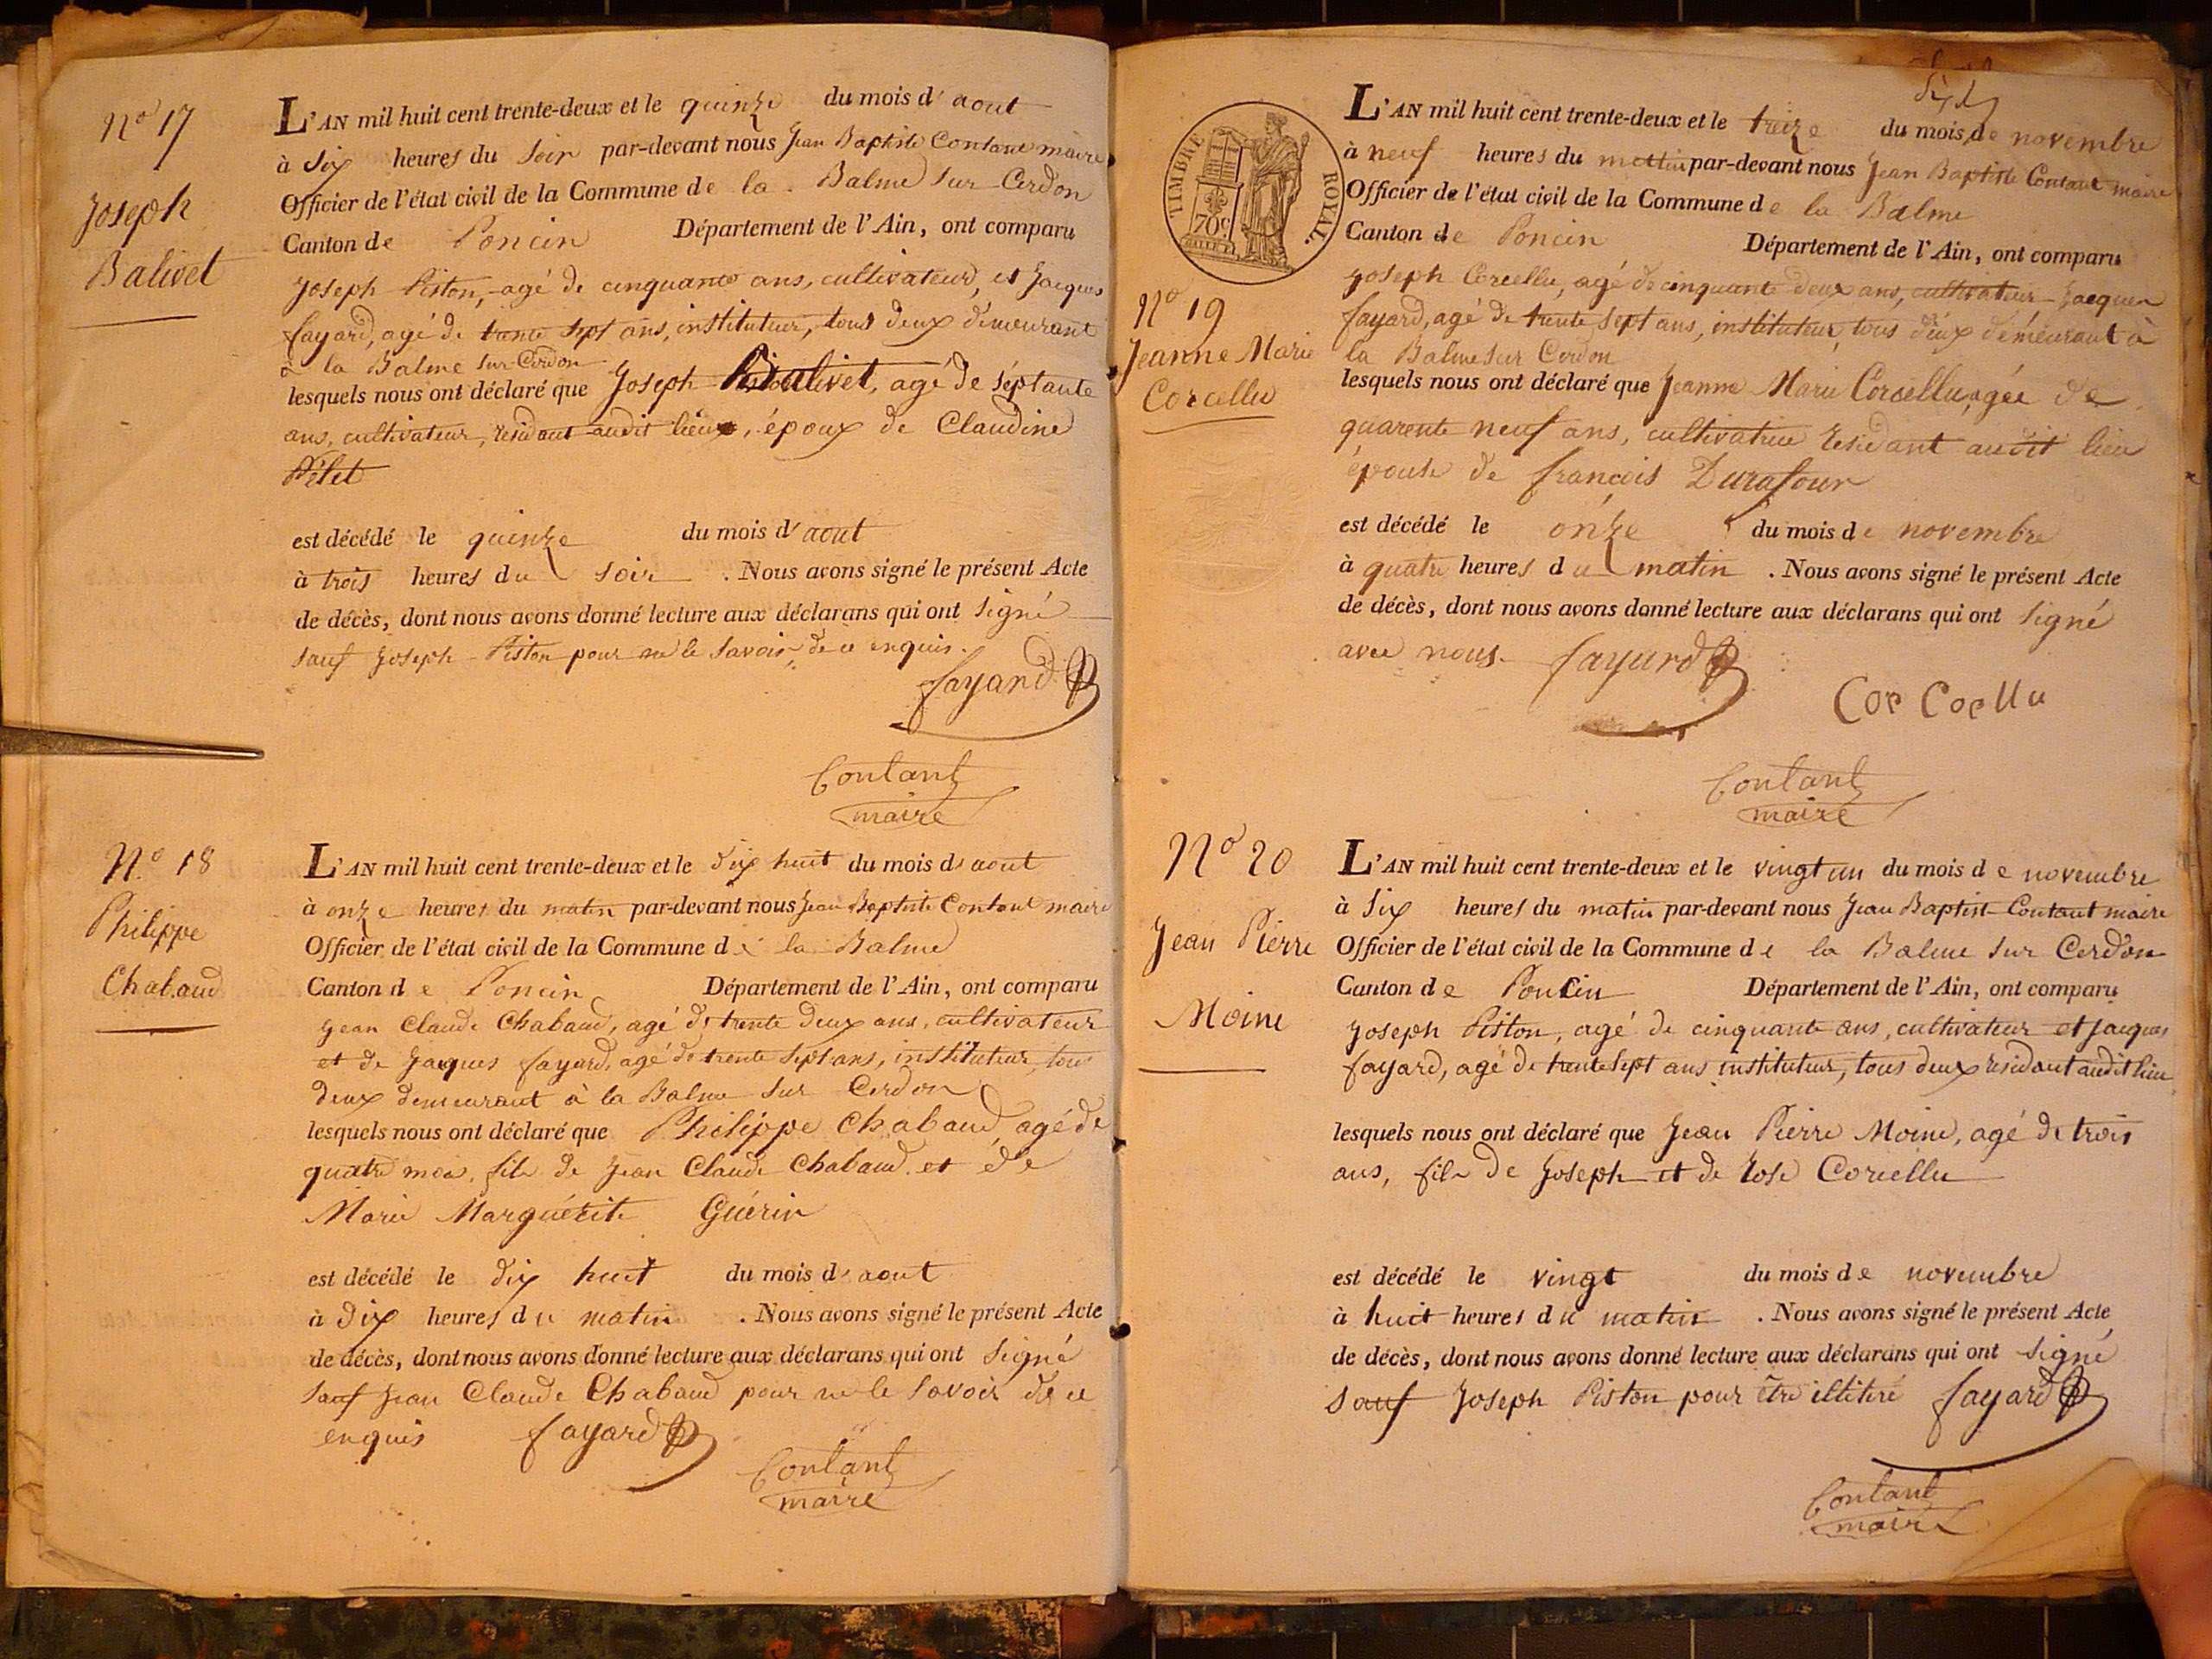 N° 17
Joseph
Balivet
L'AN mil huit cent trente-deux et le quinze du mois d'aout
à six heures du soir par-devant nous Jean Baptiste Contant maire
Officier de l'état civil de la Commune de la Balme sur Cerdon
Canton de Poncin Département de l'Ain, ont comparu
Joseph Piston, agé de cinquante ans, cultivateur, et Jacques
fayard, agé de trente sept ans, instituteur, tous deux demeurant
à la Balme sur Cerdon
lesquels nous ont déclaré que Joseph Balivet, agé de séptante
ans, cultivateur, residant audit lieu, époux de Claudine
Pélet
est décédé le quinze du mois d'aout
à trois heures du soir . Nous avons signé le présent Acte
de décès, dont nous avons donné lecture aux déclarans qui ont signé
sauf Joseph Piston pour ne le savoir, de ce enquis.
fayard
Contant
maire
N.° 18
Philippe
Chabaud
L'AN mil huit cent trente-deux et le dix huit du mois d'aout
à onze heures du matin par-devant nous Jean Baptiste Contant maire
Officier de l'état civil de la Commune de la Balme
Canton de Poncin Département de l'Ain, ont comparu
Jean Claude Chabaud, agé de trente deux ans, cultivateur
et de Jaques fayard, agé de trente sept ans, instituteur, tous
deux demeurant à la Balme sur Cerdon
lesquels nous ont déclaré que Philippe Chabaud, agé de
quatre mois, fils de Jean Claude Chabaud et de
Marie Marguérite Guérin
est décédé le dix huit du mois d'aout
à dix heures du matin . Nous avons signé le présent Acte
de décès, dont nous avons donné lecture aux déclarans qui ont signé
sauf Jean Claude Chabaud pour ne le savoir de ce
enquis fayard
Contant
maire
TIMBRE ROYAL.
70c.
N° 19
Jeanne Marie
Corcellu
L'AN mil huit cent trente-deux et le treize du mois de novembre
à neuf heures du mattin par-devant nous Jean Baptiste Contant maire
Officier de l'état civil de la Commune de la Balme
Canton de Poncin Département de l'Ain, ont comparu
Joseph Corcellu, agé de cinquante deux ans, cultivateur Jacques
fayard, agé de trente sept ans, instituteur, tous deux demeurant à
la Balme sur Cerdon
lesquels nous ont déclaré que Jeanne Marie Corcellu, agée de
quarente neuf ans, cultivatrice residant audit lieu
épouse de françois Durafour
est décédé le onze du mois de novembre
à quatre heures du matin . Nous avons signé le présent Acte
de décès, dont nous avons donné lecture aux déclarans qui ont signé
avec nous. fayard
Cor Coellu
Contant
maire
N° 20
Jean Pierre
Moine
L'AN mil huit cent trente-deux et le vingt un du mois de novembre
à six heures du matin par-devant nous Jean Baptist Contant maire
Officier de l'état civil de la Commune de la Balme sur Cerdon
Canton de Poncin Département de l'Ain, ont comparu
Joseph Piston, agé de cinquante ans, cultivateur et Jacques
fayard, agé de trente sept ans instituteur, tous deux residant audit lieu
lesquels nous ont déclaré que Jean Pierre Moine, agé de trois
ans, fils de Joseph et de Rose Corcellu
est décédé le vingt du mois de novembre
à huit heures du matin . Nous avons signé le présent Acte
de décès, dont nous avons donné lecture aux déclarans qui ont signé
sauf Joseph Piston pour être illitéré fayard
Contant
maire